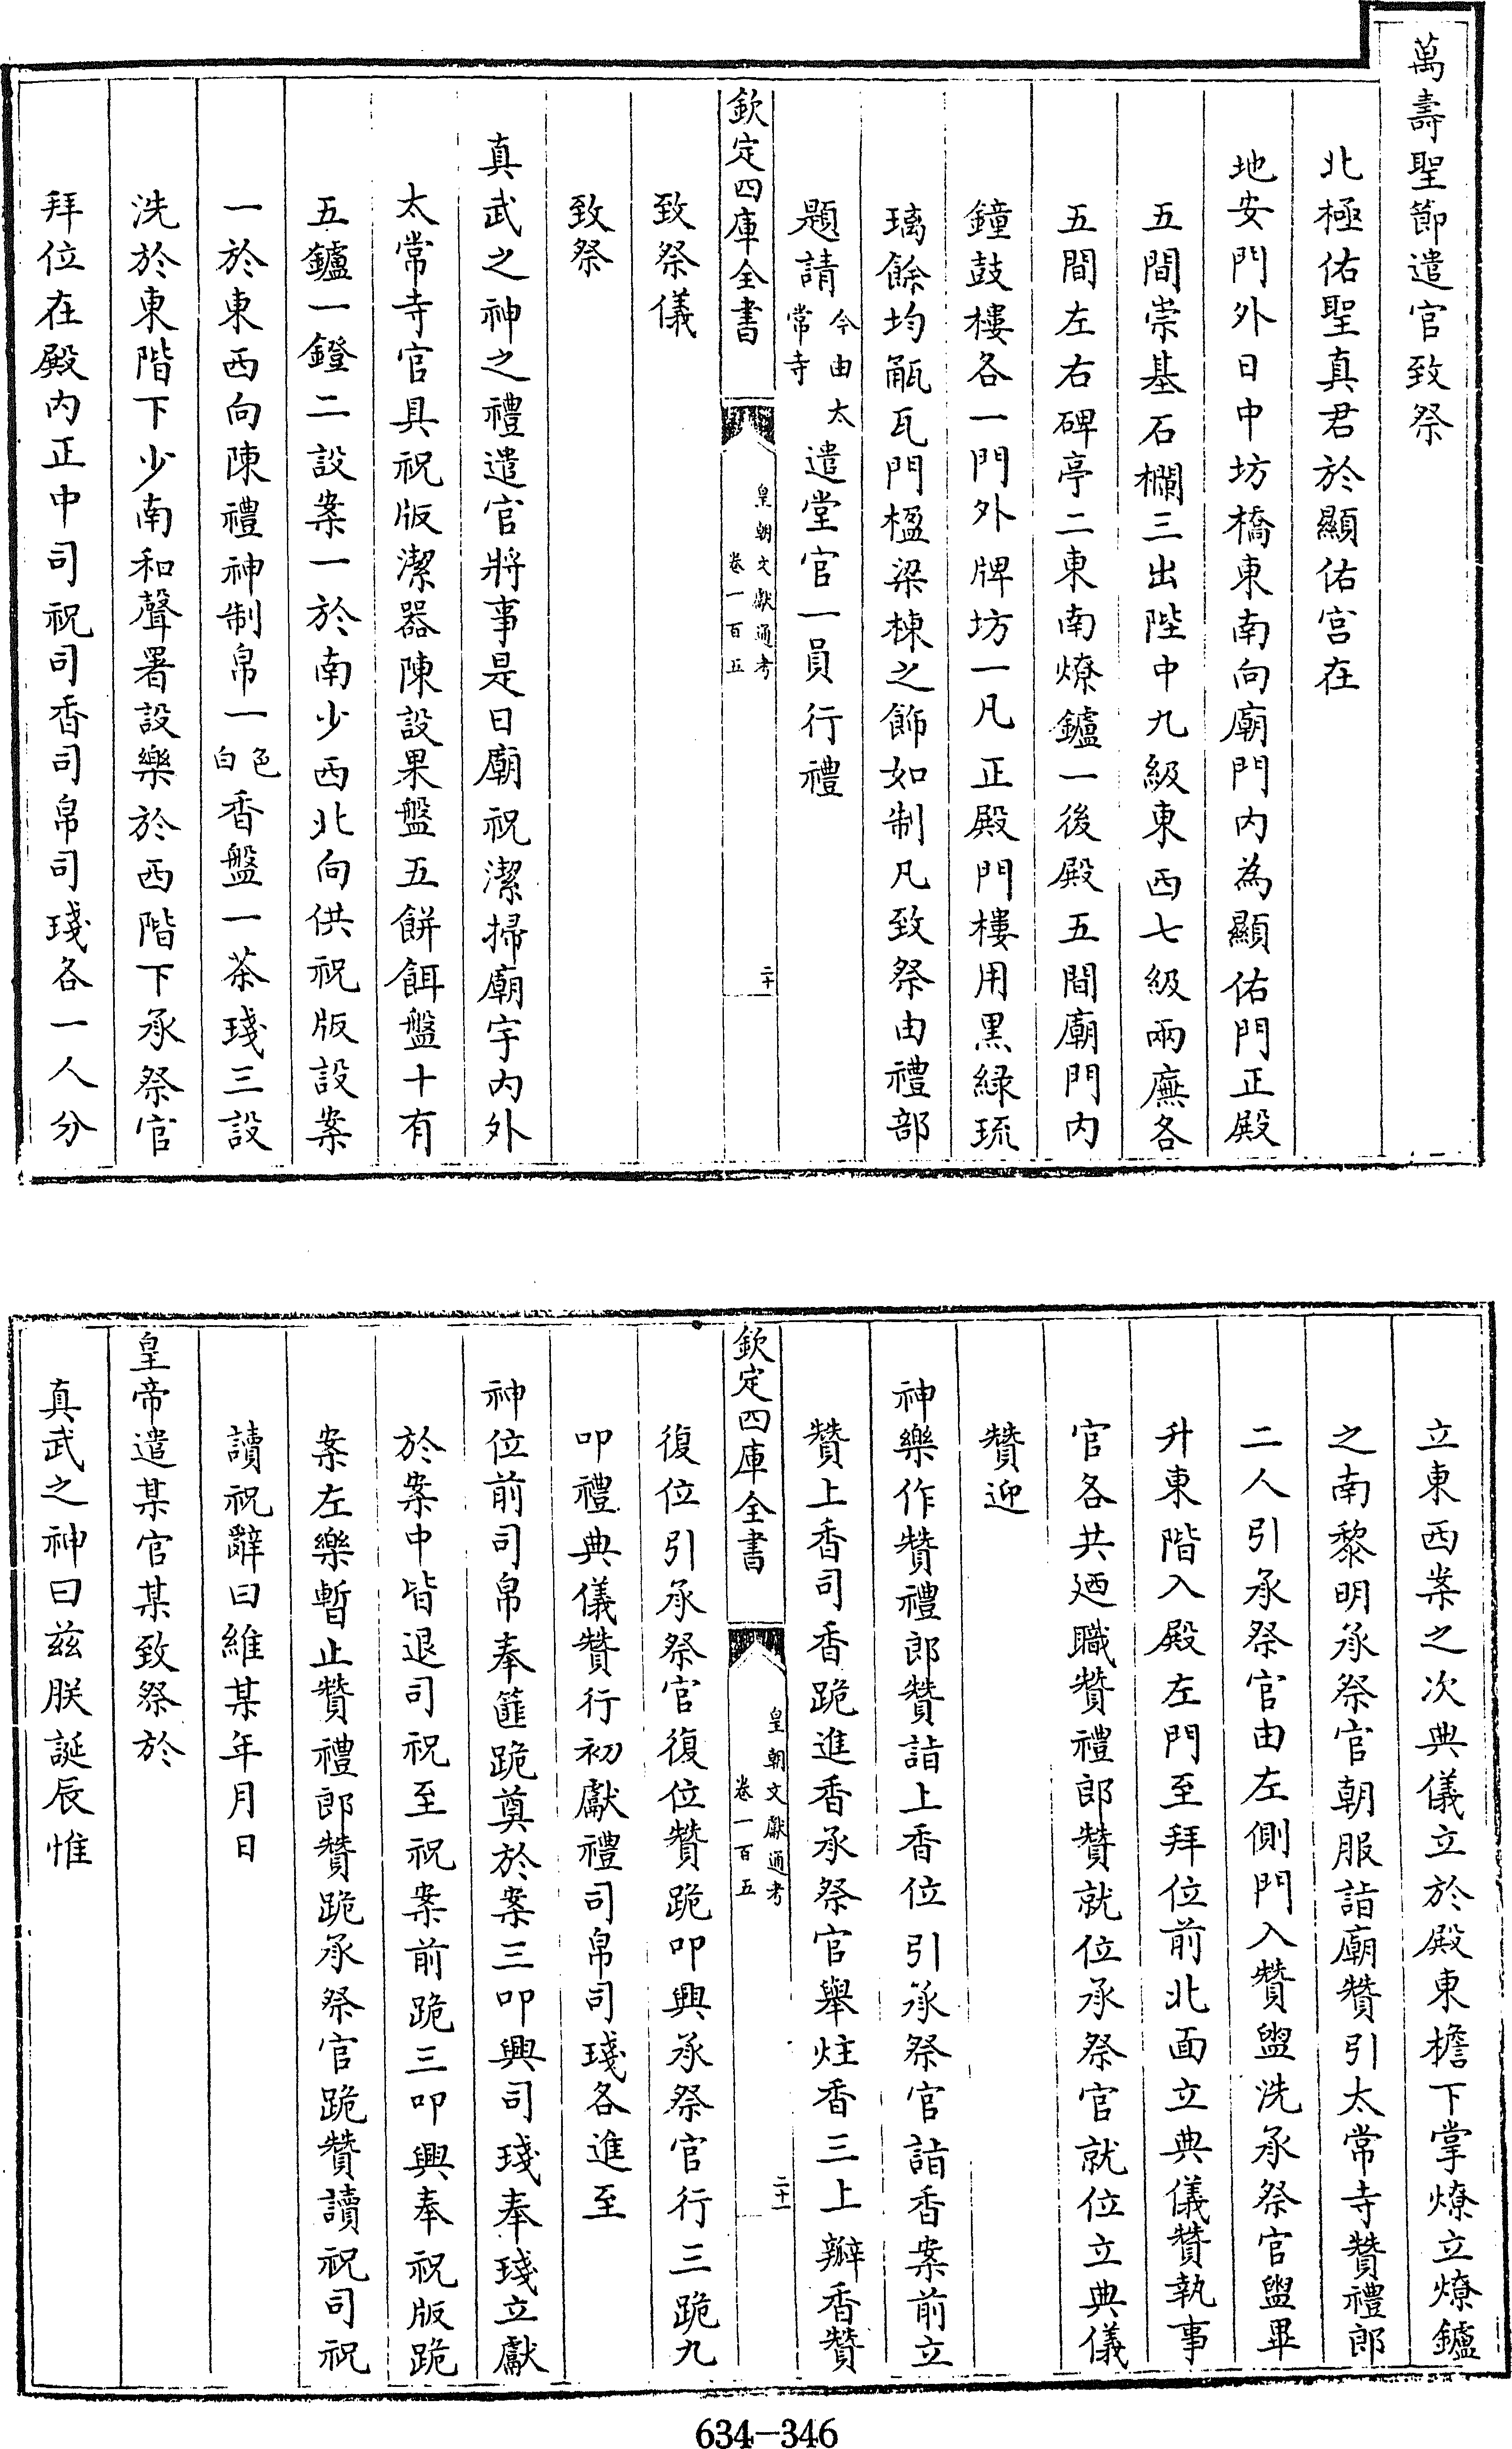 萬壽聖節遣官致祭
北極佑聖真君於顯佑宮在
地安門外日中坊橋東南向廟門內為顯佑門正殿
五間崇基石欄三出陛中九級東西七級兩廡各
五間左右碑亭二東南燎鑪一後殿五間廟門內
鐘鼓樓各一門外牌坊一凡正殿門樓用黑綠琉
璃餘均㼧瓦門楹梁棟之飾如制凡致祭由禮部
題請今由太常寺遣堂官一員行禮
欽定四庫全書
皇朝文獻通考
卷一百五
二十
致祭儀
致祭
真武之神之禮遣官將事是日廟祝潔掃廟宇內外
太常寺官具祝版潔器陳設果盤五餅餌盤十有
五鑪一鐙二設案一於南少西北向供祝版設案
一於東西向陳禮神制帛一色白香盤一茶琖三設
洗於東階下少南和聲署設樂於西階下承祭官
拜位在殿內正中司祝司香司帛司琖各一人分
立東西案之次典儀立於殿東檐下掌燎立燎鑪
之南黎明承祭官朝服詣廟贊引太常寺贊禮郎
二人引承祭官由左側門入贊盥洗承祭官盥畢
升東階入殿左門至拜位前北面立典儀贊執事
官各共廼職贊禮郎贊就位承祭官就位立典儀
贊迎
神樂作贊禮郎贊詣上香位引承祭官詣香案前立
贊上香司香跪進香承祭官舉炷香三上瓣香贊
欽定四庫全書
皇朝文獻通考
卷一百五
二十一
復位引承祭官復位贊跪叩興承祭官行三跪九
叩禮典儀贊行初獻禮司帛司琖各進至
神位前司帛奉篚跪奠於案三叩興司琖奉琖立獻
於案中皆退司祝至祝案前跪三叩興奉祝版跪
案左樂暫止贊禮郎贊跪承祭官跪贊讀祝司祝
讀祝辭曰維某年月日
皇帝遣某官某致祭於
真武之神曰茲朕誕辰惟
634-346